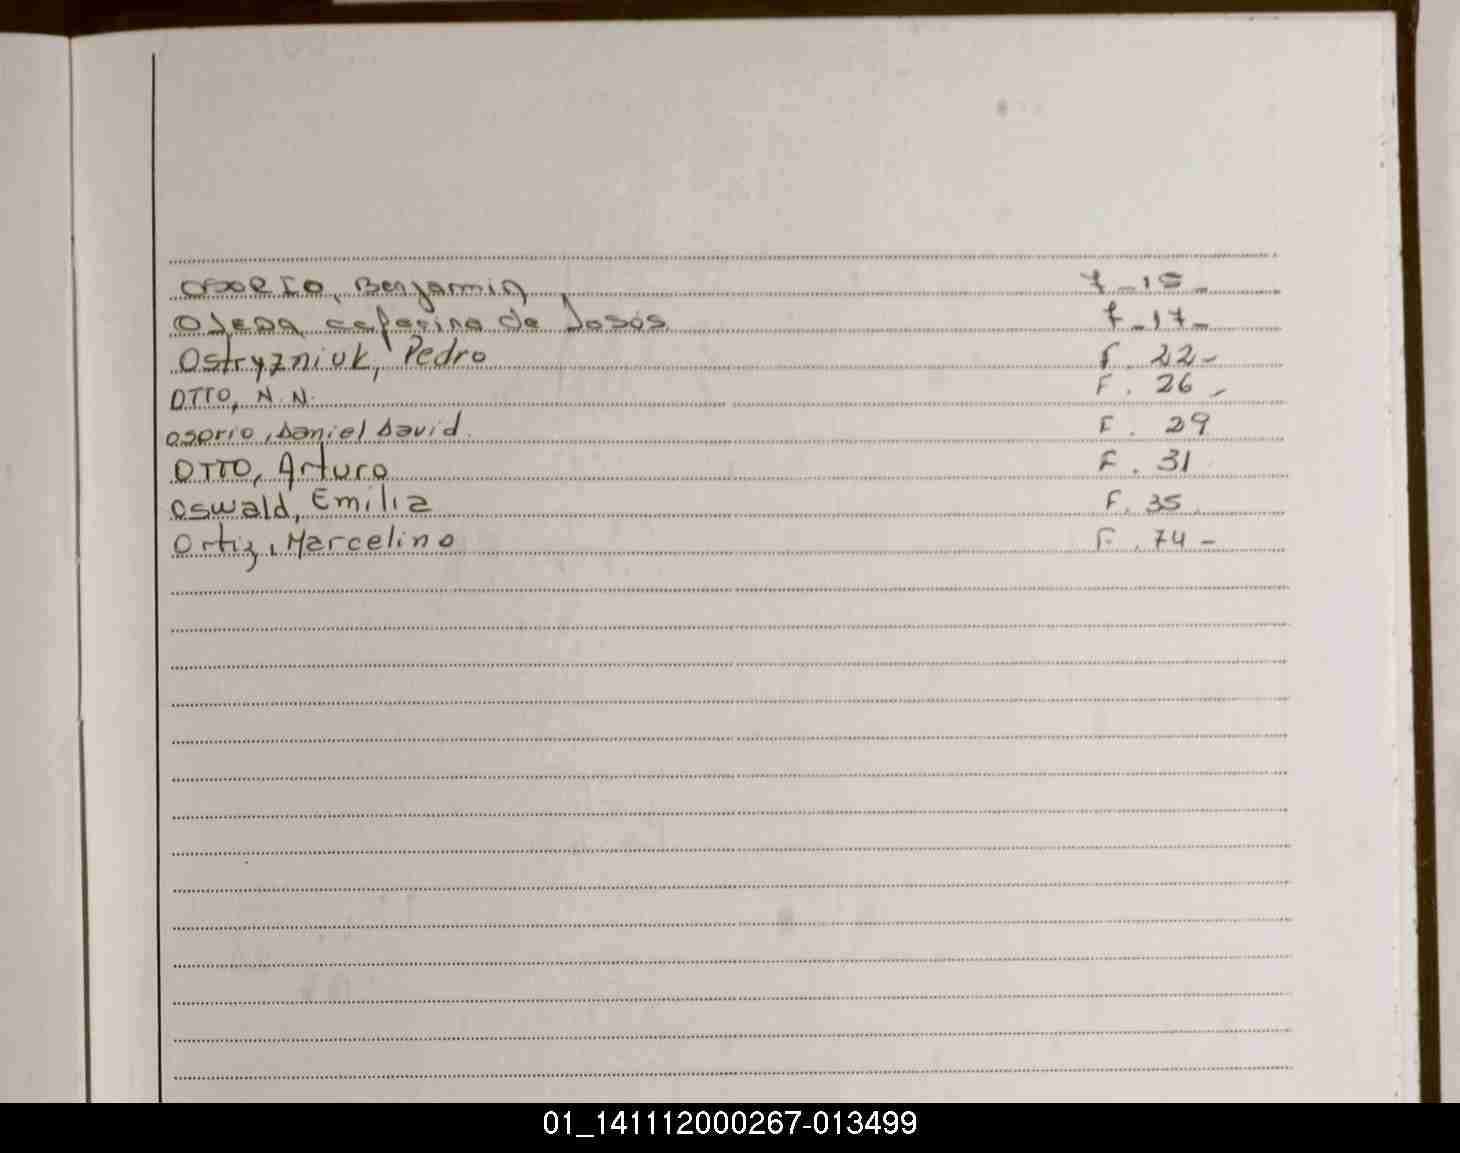 OSORIO, Benjamin f_15_
OJEDA ceferina de Josós f_17_
Ostryzniuk, Pedro F. 22-
OTTO, N.N. F. 26-
osorio, Daniel David. F. 29
OTTO, Arturo F. 31
Oswald, Emilia F. 35
Ortiz, Marcelino F. 74-
01_141112000267-013499